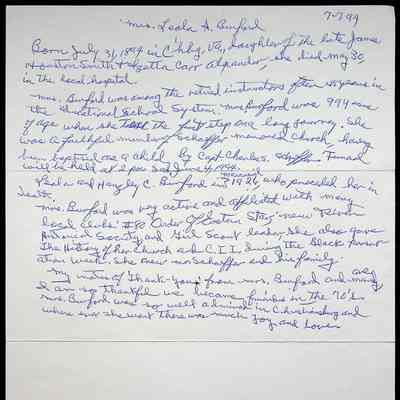 7-7-94
Mrs. Leola A. Burford
Born July 31, 1894 in C'hbg, Va, daughter of the late James
Houston Smith & Zetta Carr Alexander. She died May 30,
in the local hospital.
Mrs. Burford was among the retired instructors after 45 years in
the National School System. Mrs. Burford was 99
of age when she the first step on a long journey. She
was a faithful member Schaeffer memorial Church, having
been baptized as a child by Capt. Charles. Schaffer. Funeral
will be held at 2 pm Sat June 4, 1994.
Leola and C. Burford married in 1926, who preceded her in
death.
Mrs. Burford was very active and affiliated with many
local clubs: #80 "Order of Eastern Star" New River
Historical Society, and Girl Scout leader. She also gave
The History of her Church and C.I.I. during the Black
week. She knew Schaeffer and his family.
My notes of "Thank-yous" from Mrs. Burford and
I am so thankful we became friends in the 70's.
Mrs. Burford was so well admired in Christiansburg and
where ever she went there was much Joy and Love.